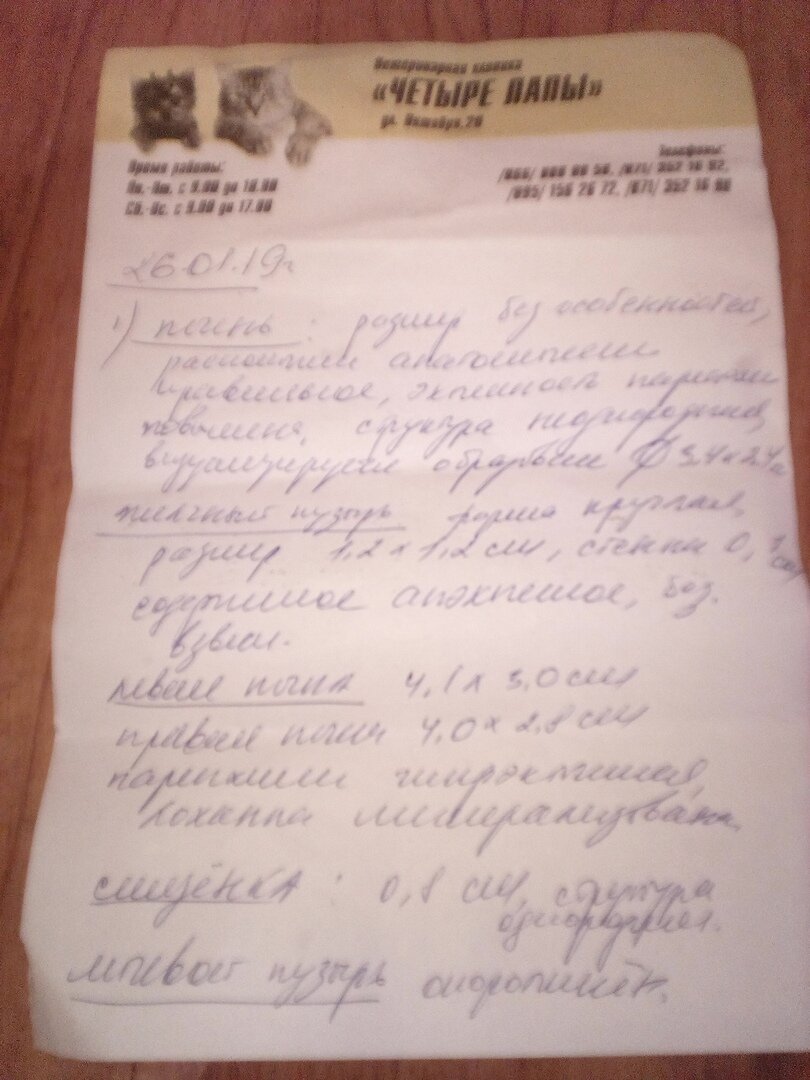 Ветеринарная клиника
«ЧЕТЫРЕ ЛАПЫ»
ул. Октября, 20
Время работы:
Пн.-Пт. с 9.00 до 18.00
Сб.-Вс. с 9.00 до 17.00
Телефоны:
26.01.19г
1) печень : размер без особенностей,
расположение анатомически
правильное, эхогенность паренхимы
повышена, структура неоднородная,
визуализируется образование Ø 3,4 х 2,4
желчный пузырь форма круглая,
размер 1,2 х 1,2 см, стенки 0,1 см
содержимое анэхогенное, без
взвеси.
левая почка 4,1 х 3,0 см
правая почка 4,0 х 2,8 см
паренхима гиперэхогенная,
лоханка минерализована.
селезёнка : 0,8 см, структура
однородная.
мочевой пузырь опорожнён.